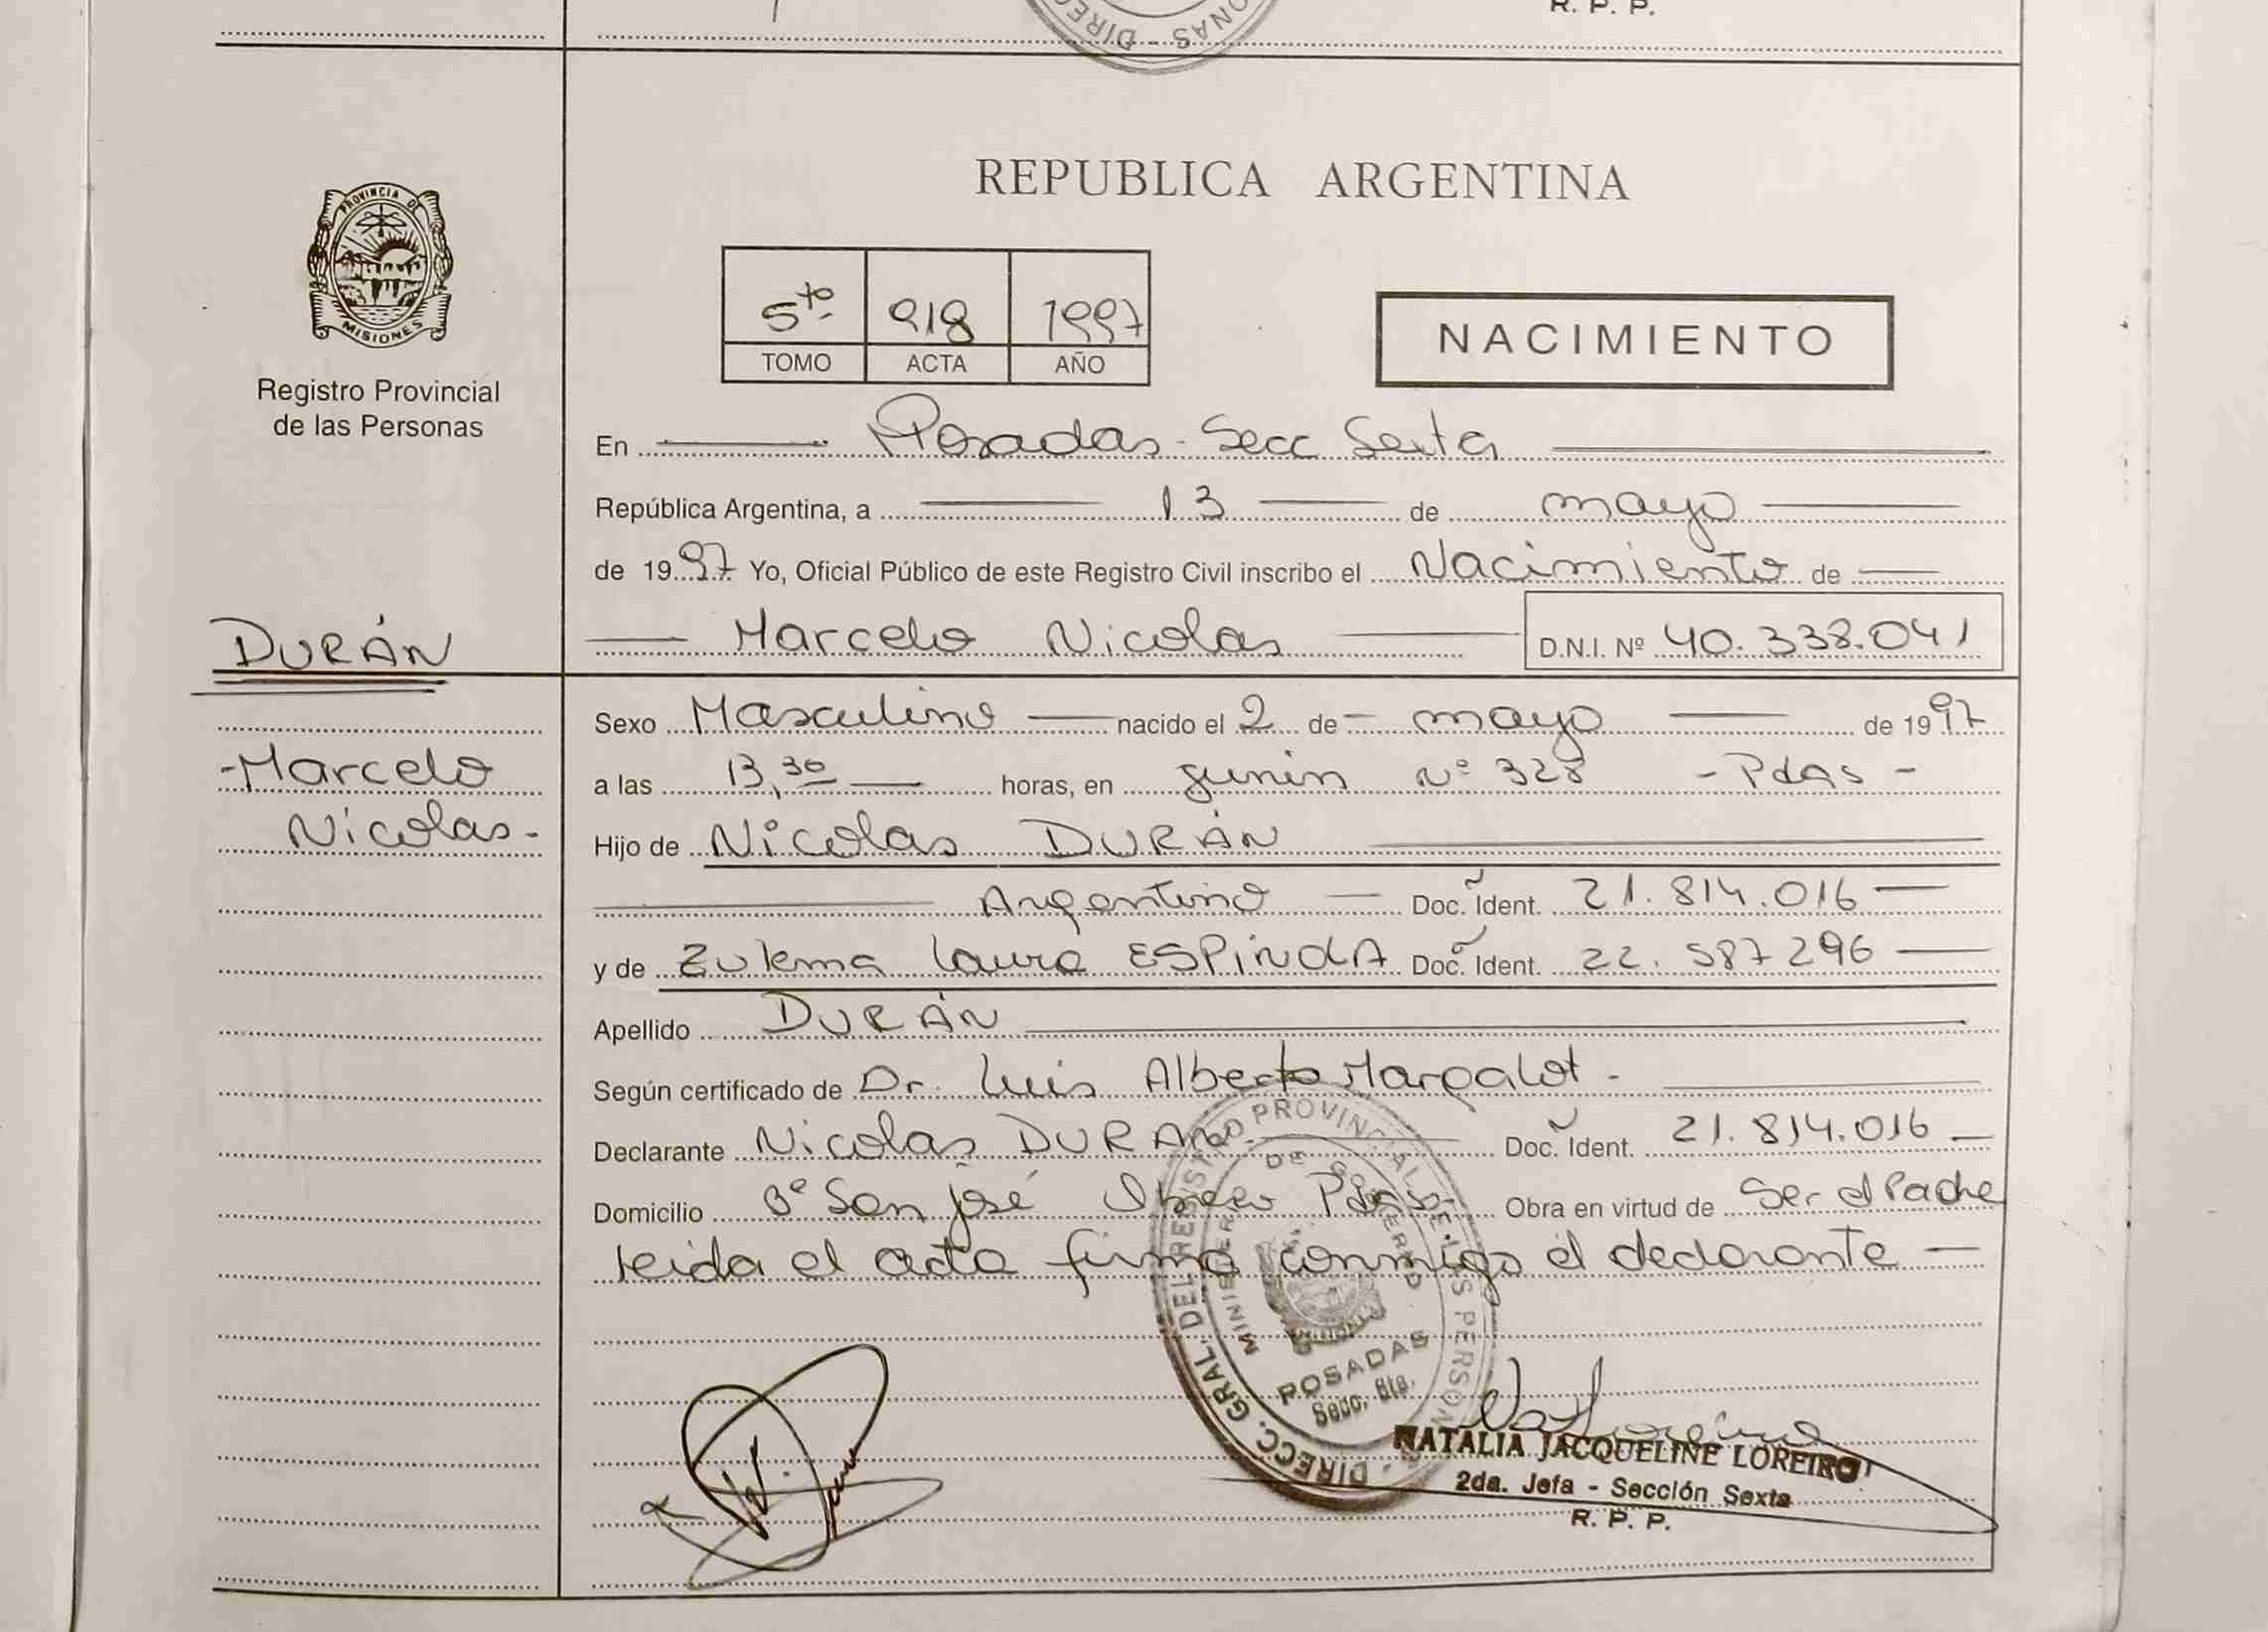 R. P. P.
DIREC
ONAS
PROVINCIA DE
MISIONES
Registro Provincial
de las Personas
REPUBLICA ARGENTINA
5to 918 1997
TOMO ACTA AÑO
NACIMIENTO
En Posadas - Secc Sexta
República Argentina, a 13 de mayo
de 1997 Yo, Oficial Público de este Registro Civil inscribo el Nacimiento de
Marcelo Nicolas D.N.I. Nº 40.338.041
DURÁN
Marcelo
Nicolas.-
Sexo Masculino nacido el 2 de mayo de 1997
a las 13,30 horas, en Junin Nº 328 - Pdas -
Hijo de Nicolas DURÁN
Argentino Doc. Ident. 21.814.016
y de Zulema Laura ESPINOLA Doc. Ident. 22.587296
Apellido DURÁN
Según certificado de Dr. Luis Alberto Margalot -
Declarante Nicolas DURAN Doc. Ident. 21.814.016
Domicilio Bº San José Obrero Pdas - Obra en virtud de Ser el Padre
leida el acta firma conmigo el declarante
DIRECC. GRAL. DEL REGISTRO PROVINCIAL DE LAS PERSONAS
MINISTERIO DE GOBIERNO
POSADAS
Secc. 6ta.
NATALIA JACQUELINE LOREIRO
2da. Jefa - Sección Sexta
R. P. P.